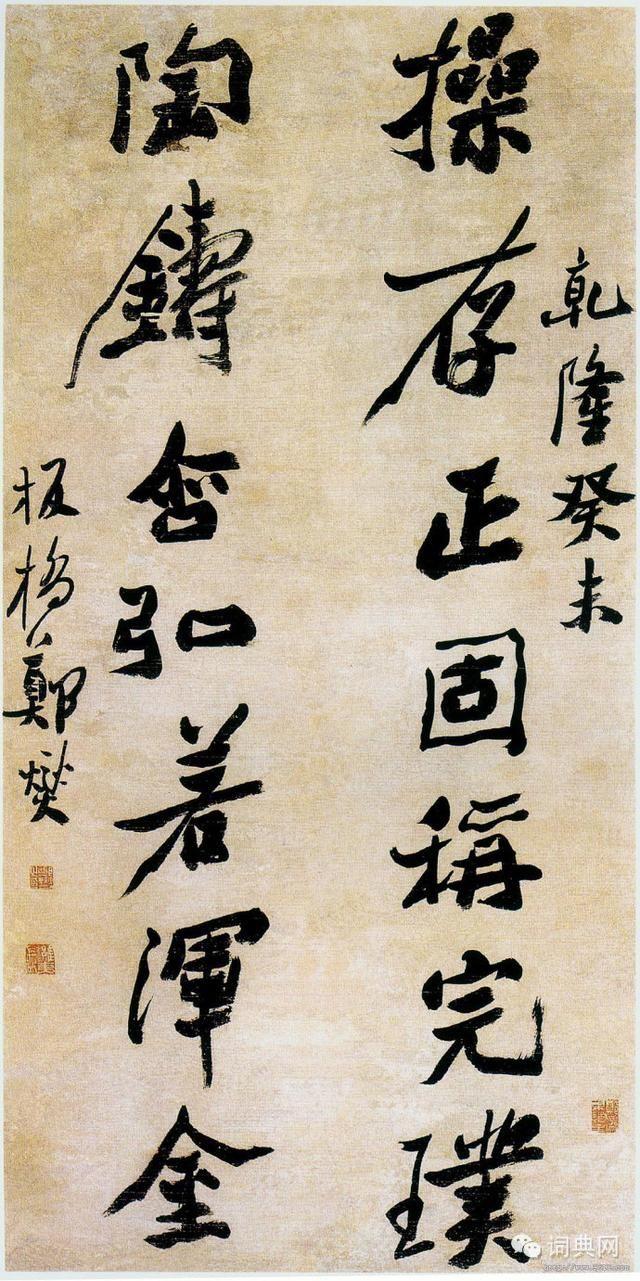 乾隆癸未
操存正固稱完璞
陶鑄含弘若渾金
板橋鄭燮
词典网